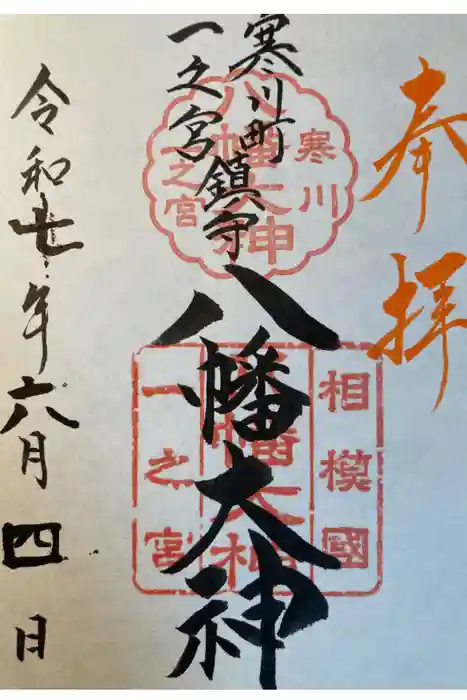 奉拝
寒川町鎮守
一之宮
八幡大神
寒川
八幡大神
一之宮
相模國
八幡大神
一之宮
令和七年六月四日